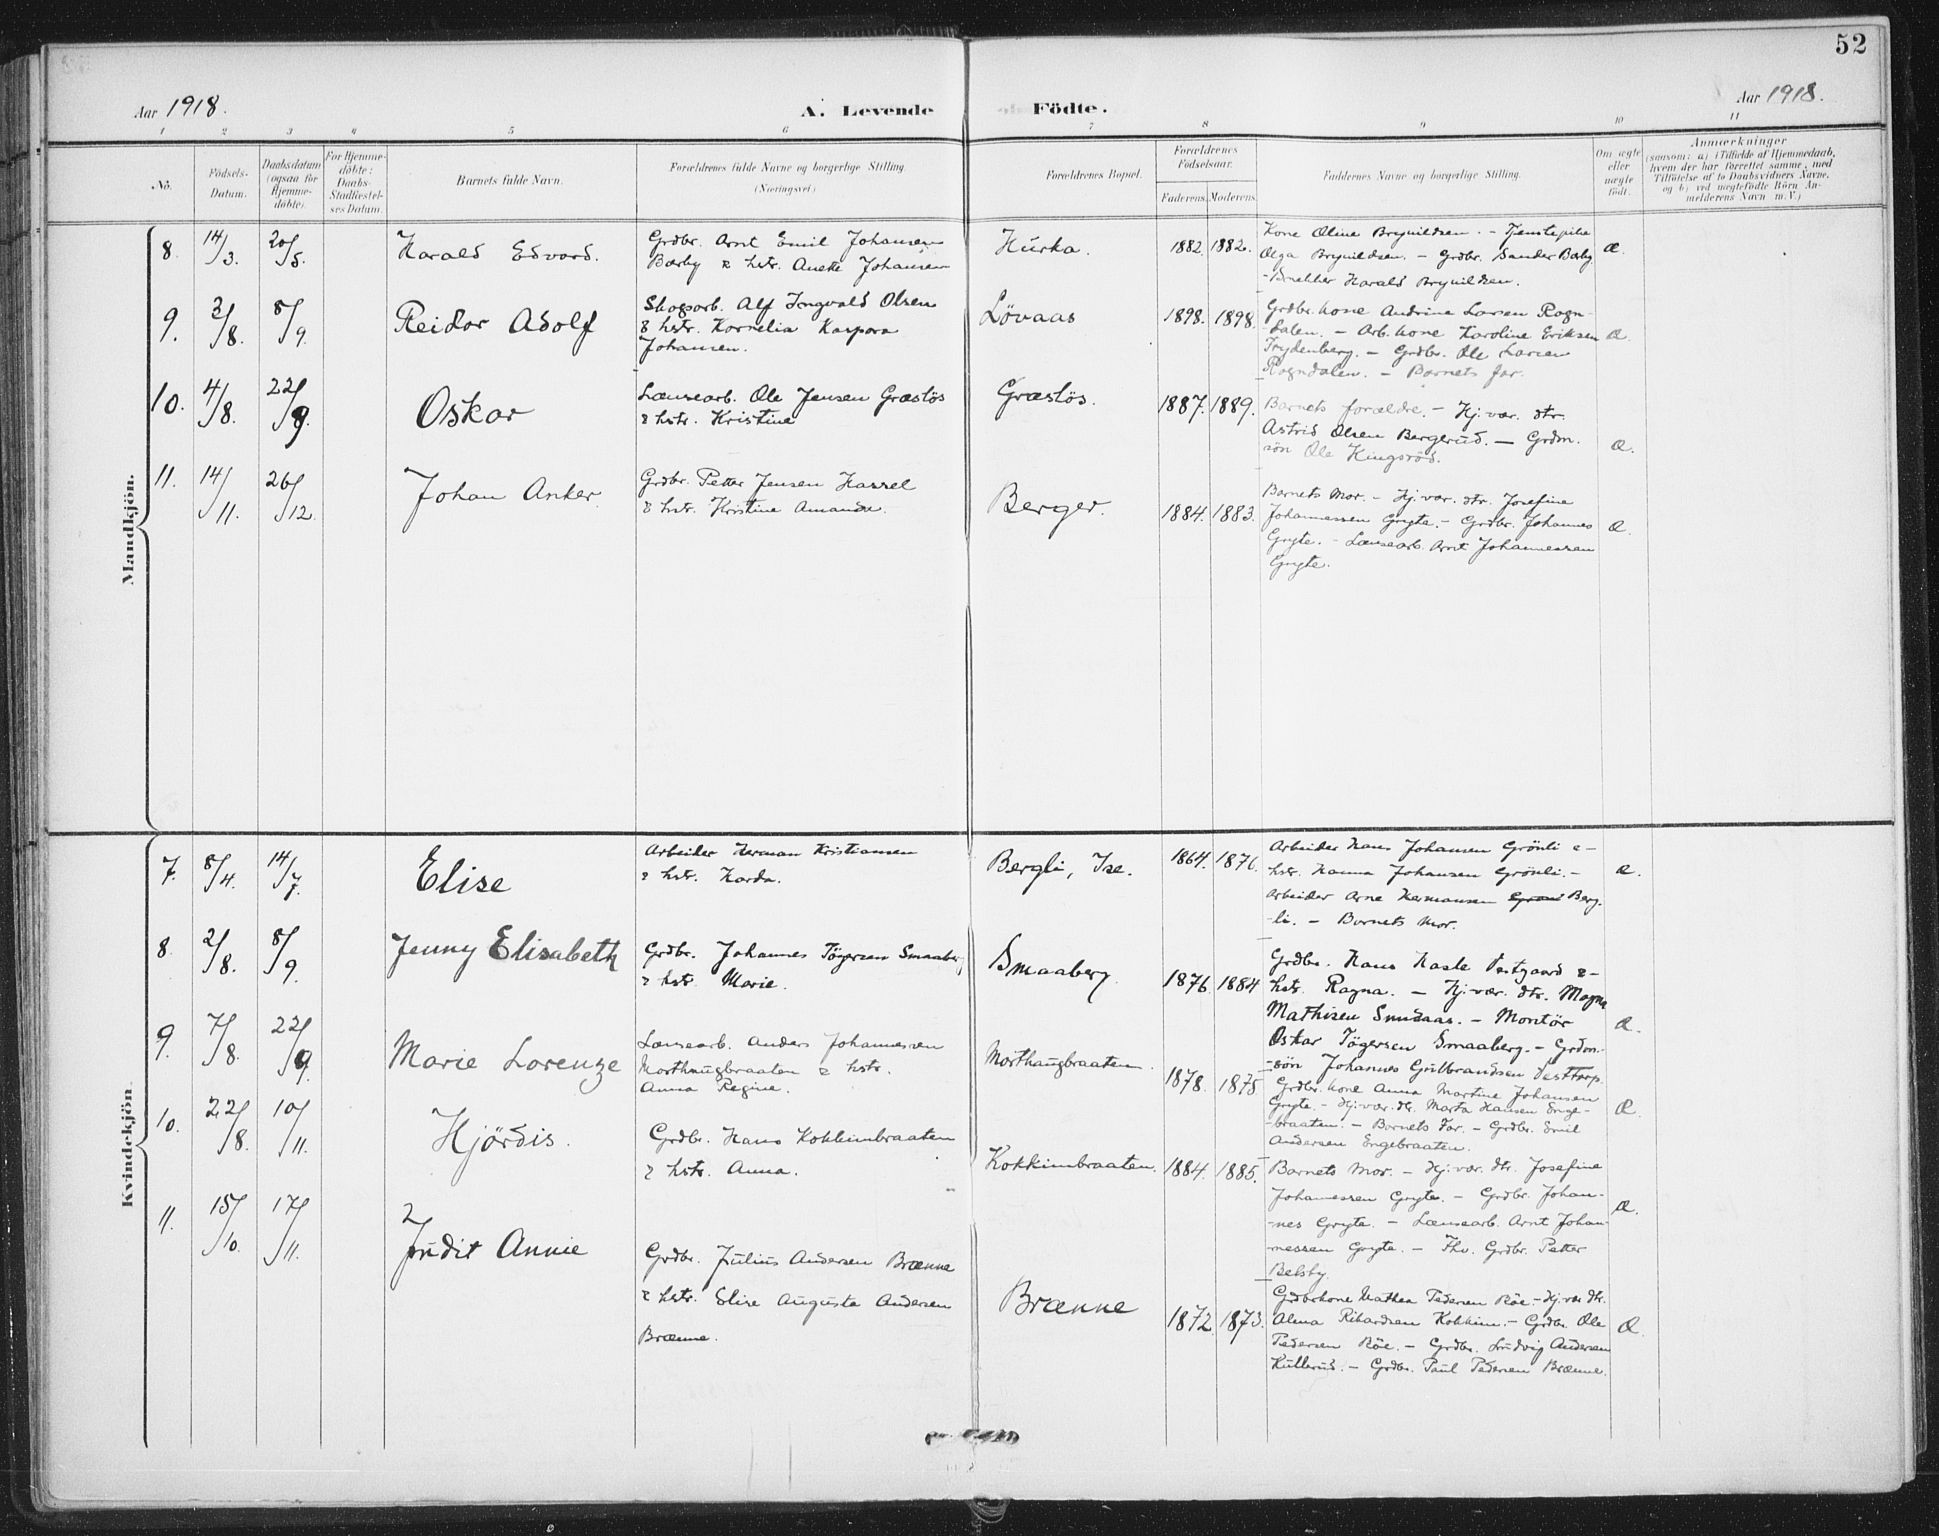 52
Aar 1918.
A. Levende Födte.
Aar 1918.
1 2 3 4 5 6 7 8 9 10 11
No.
Födsels-
Datum.
Daabsdatum
(ogsaa for
Hjemme-
döbte).
For Hjemme-
döbte:
Daabs-
Stadfæstel-
ses Datum.
Barnets fulde Navn.
Forældrenes fulde Navne og borgerlige Stilling.
(Næringsvei)
Forældrenes Bopæl.
Forældrenes
Födselsaar.
Faderens. Moderens.
Faddernes Navne og borgerlige Stilling.
Om ægte
eller
uægte
født.
Anmærkninger
(saasom: a) i Tilfælde af Hjemmedaab,
hvem der har forrettet samme, med
Tilföielse af to Daabsvidners Navne,
og b) ved uægtefödte Börn An-
melderens Navn m. V.)
Mandkjön.
8. 14/3. 20/5. Harald Edvard.
Grdbr. Arnt Emil Johansen
Barby & hstr. Anette Johansen
Hurka.
1882. 1882.
Kone Oline Brynildsen. - Tjenstepike
Olga Brynildsen. - Grdbr. Sander Barby.
Harald Brynildsen.
Æ.
9. 3/8. 8/9. Reidar Adolf
Skogsarb. Alf Ingvald Olsen
& hstr. Kornelia Kaspara
Johansen.
Lövaas
1898. 1898.
Grdbr.kone Andrine Larsen Rogn-
dalen. - Arb.kone Karoline Eriksen
Frydenberg. - Grdbr. Ole Larsen
Rogndalen. - Barnets far.
Æ.
10. 4/8. 22/9. Oskar
Lænsearb. Ole Jensen Græslös
& hstr. Kristine
Græslös.
1887. 1889.
Barnets forældre. - Hj.vær. dtr.
Astrid Olsen Bergerud. - Grdm.
sön Ole Kingsröd.
Æ.
11. 14/11. 26/12. Johan Anker.
Grdbr. Petter Jensen Hassel
& hstr. Kristine Amanda.
Berger.
1884. 1883.
Barnets Mor. - Hj.vær. dtr. Josefine
Johannessen Gryte. - Grdbr. Johannes
Gryte. - Lænsearb. Arnt Johannessen
Gryte.
Æ.
Kvindekjön
7. 8/4. 14/7. Elise
Arbeider Herman Kristiansen
& hstr. Karda.
Bergli, Ise.
1864. 1876.
Arbeider Hans Johansen Grönli &
hstr. Hanna Johansen Grönli. -
Arbeider Arne Hermansen Berg-
-li. - Barnets Mor.
Æ.
8. 2/8. 8/9. Jenny Elisabeth
Grdbr. Johannes Tögersen Smaaberg
& hstr. Marie.
Smaaberg.
1876. 1884
Grdbr. Hans Hasle Vestgaard &
hstr. Ragna. - Hj.vær. dtr. Magna
Mathisen Smedaas. - Montör
Oskar Tögersen Smaaberg. - Grdm.-
-sön Johannes Gulbrandsen Vesttorp.
Æ.
9. 7/8. 22/9. Marie Lorenze
Lænsearb. Anders Johannesen
Morthaugbraaten & hstr.
Anna Regine.
Morthaugbraaten.
1878. 1875
Grdbr.kone Anna Martine Johansen
Gryte. - Hj.vær. dtr. Marta Hansen Enge-
-braaten. - Barnets Far. - Grdbr. Emil
Andersen Engebraaten.
Æ.
10. 22/8. 10/11. Hjördis.
Grdbr. Hans Kokkimbraaten
& hstr. Anna.
Kokkimbraaten.
1884. 1885.
Barnets Mor. - Hj.vær. dtr. Josefine
Johannessen Gryte. - Grdbr. Johan-
-nes Gryte. - Lænsearb. Arnt Johan-
-nessen Gryte. - Fhv. Grdbr. Petter
Belsby.
Æ.
11. 15/10. 17/11. Judit Annie
Grdbr. Julius Andersen Brænne
& hstr. Elise Augusta Andersen
Brænne.
Brænne
1872. 1873.
Grdbrkone Mathea Pedersen Röe. - Hj.vær dtr.
Alma Rikardsen Kokkim. - Grdbr. Ole
Pedersen Röe. - Grdbr. Ludvig Andersen
Kullerud. - Grdbr. Paul Pedersen Brænne.
Æ.